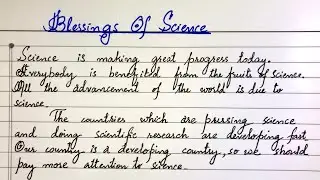 Blessings Of Science
Science is making great progress today.
Everybody is benefited from the fruits of science.
All the advancement of the world is due to
science.
The countries which are pursuing science
and doing scientific research are developing fast
Our country is a developing country, so we should
pay more attention to science.